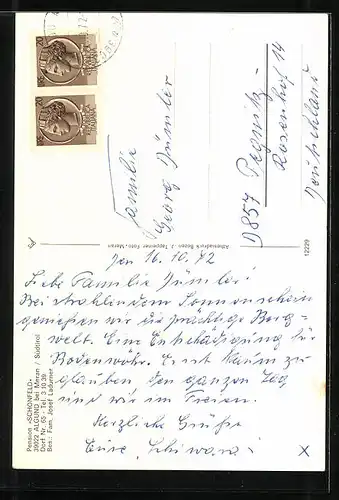 Familie
Georg Dümler
D857 Pegnitz
Rosenhof 14
Deutschland
Athesiadruck Bozen - J. Tappeiner, Foto, Meran
12229
Den 16.10.72
Liebe Familie Dümler!
Bei strahlendem Sonnenschein
genießen wir die prächtige Berg-
welt. Eine Entschädigung für
Bodenwöhr. Es ist kaum zu
glauben den ganzen Tag
sind wir im Freien.
Herzliche Grüße
Eure
Pension «SCHÖNFELD»
39022 ALGUND bei Meran / Südtirol
Dorf Nr. 65 - Tel. 3 10 39
Bes.: Fam. Josef Ladurner